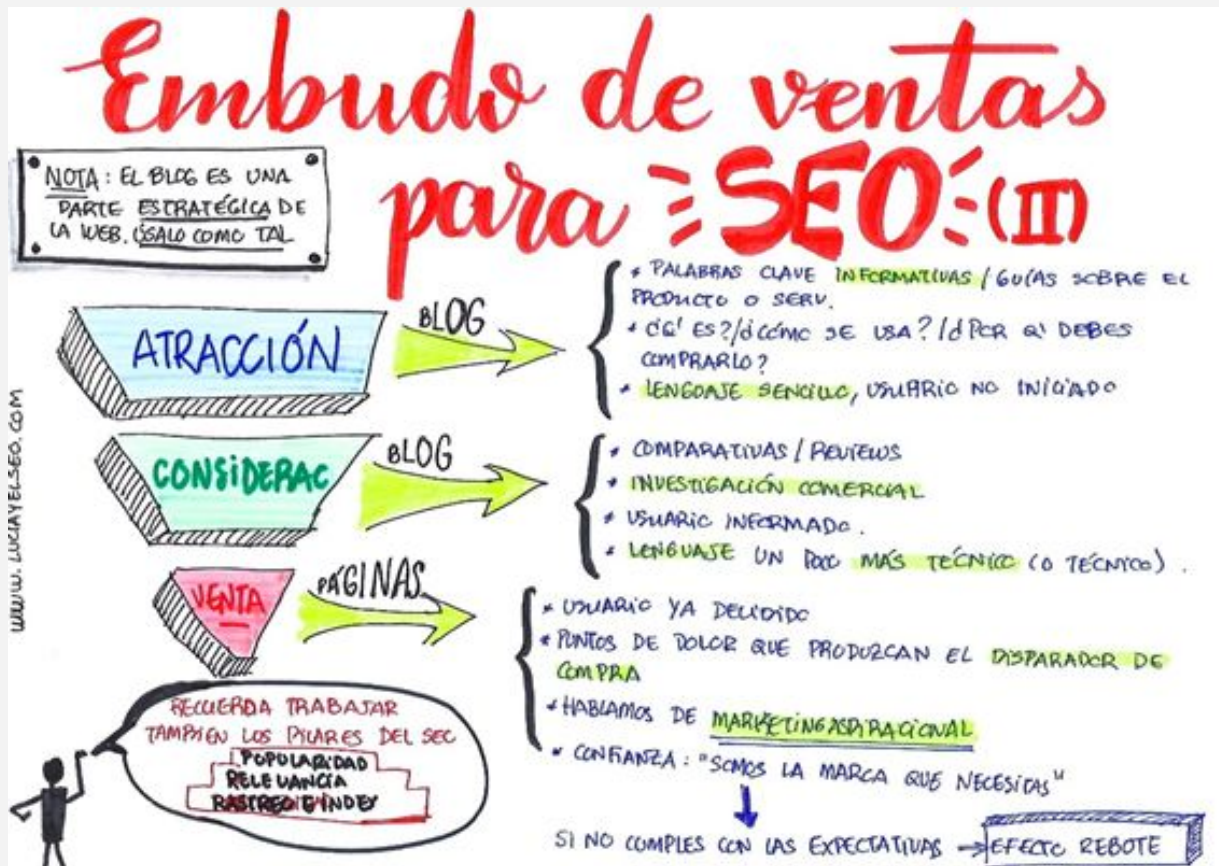 Embudo de ventas
para SEO (II)
NOTA: EL BLOG ES UNA
PARTE ESTRATÉGICA DE
LA WEB. ÚSALO COMO TAL
ATRACCIÓN
BLOG
* PALABRAS CLAVE INFORMATIVAS / GUÍAS SOBRE EL
PRODUCTO O SERV.
* ¿Q' ES?/¿CÓMO SE USA?/¿POR Q' DEBES
COMPRARLO?
* LENGUAJE SENCILLO, USUARIO NO INICIADO
CONSIDERAC
BLOG
* COMPARATIVAS / REVIEWS
* INVESTIGACIÓN COMERCIAL
* USUARIO INFORMADO.
* LENGUAJE UN POCO MÁS TÉCNICO (O TÉCNICO).
VENTA
PÁGINAS
* USUARIO YA DECIDIDO
* PUNTOS DE DOLOR QUE PRODUZCAN EL DISPARADOR DE
COMPRA
* HABLAMOS DE MARKETING ASPIRACIONAL
* CONFIANZA: "SOMOS LA MARCA QUE NECESITAS"
SI NO CUMPLES CON LAS EXPECTATIVAS → EFECTO REBOTE
RECUERDA TRABAJAR
TAMBIEN LOS PILARES DEL SEO
POPULARIDAD
RELEVANCIA
RASTREO E INDEX
www.LUCIAYELSEO.COM